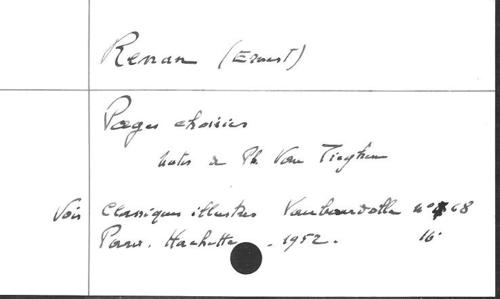 Renan (Ernest)
Pages choisies
Notes de Ph. Van Tieghem
Voir Classiques illustrés Vaubourdolle n° 68
Paris. Hachette. 1952. 16°